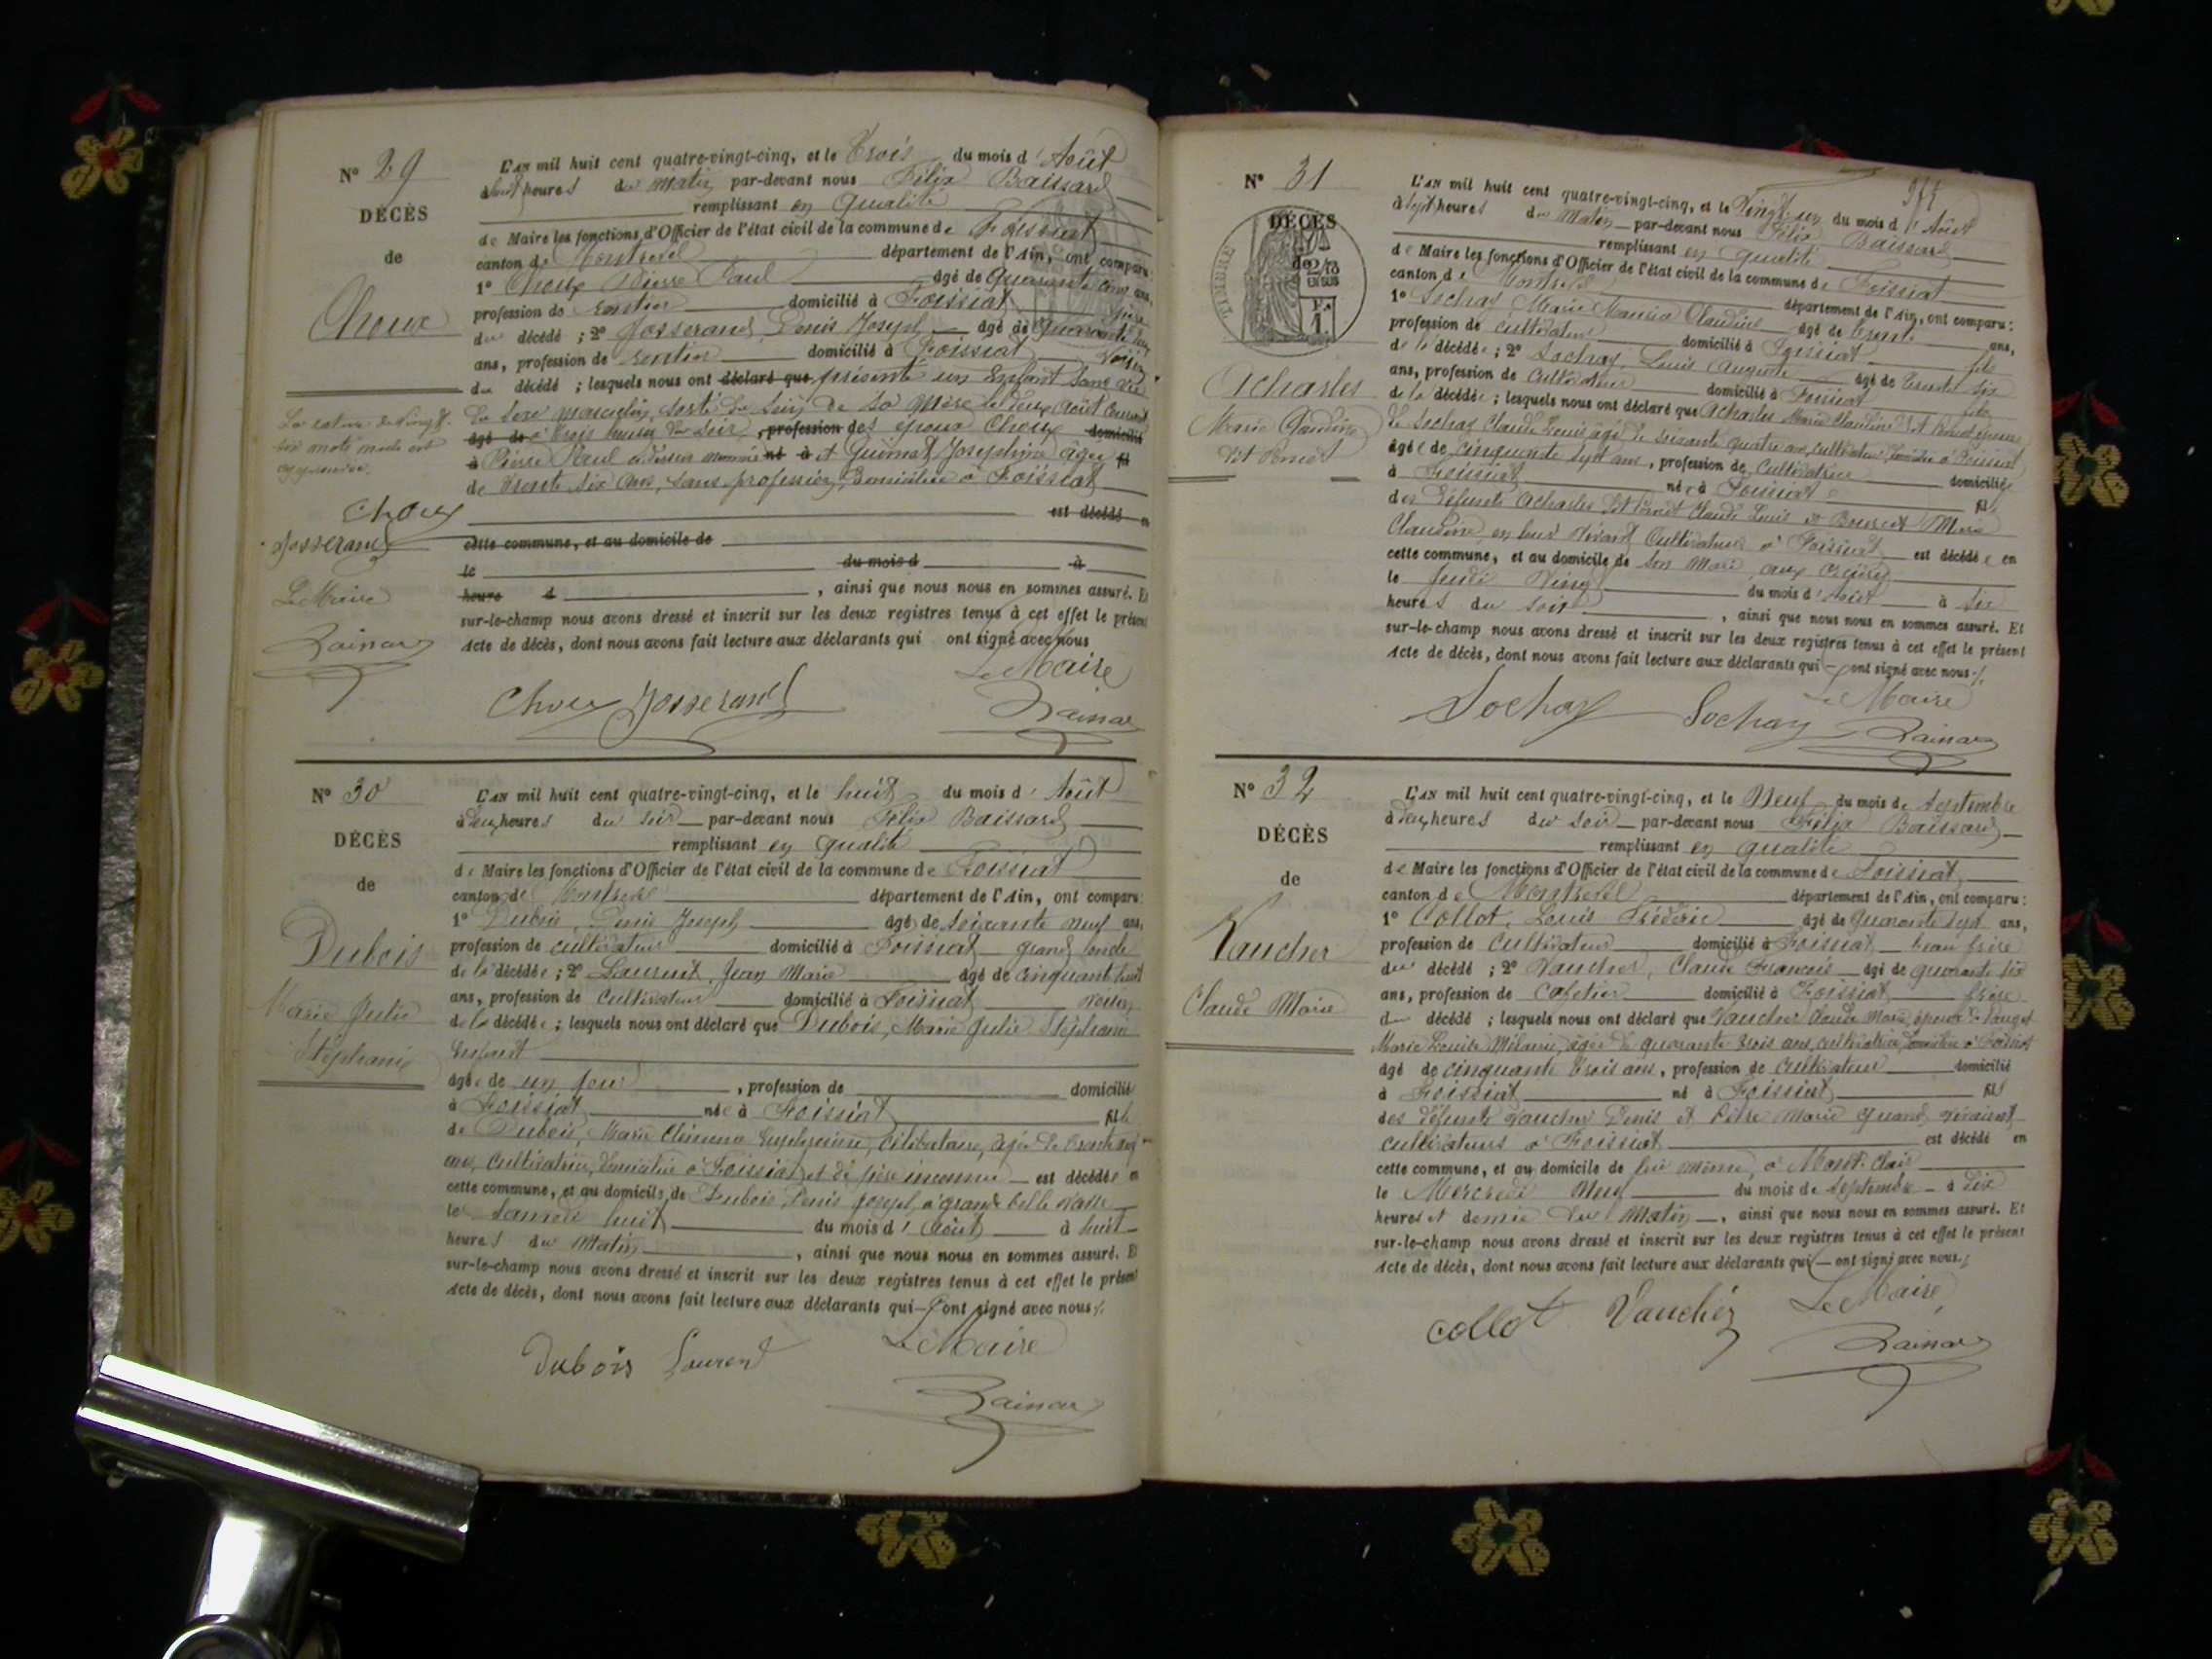 N° 29
DÉCÈS
de
Choux
La rature de vingt-
six mots nuls est
approuvée.
Choux
Josserand
Le Maire
L'AN mil huit cent quatre-vingt-cinq, et le Trois du mois d'Août
à huit heures du matin par-devant nous Félix Baissard
remplissant en qualité
de Maire les fonctions d'Officier de l'état civil de la commune de Foissiat
canton de Montrevel département de l'Ain, ont comparu
1° Choux Pierre Paul âgé de Quarante cinq ans,
profession de rentier domicilié à Foissiat père
du décédé ; 2° Josserand, Denis Joseph âgé de Quarante
ans, profession de rentier domicilié à Foissiat voisin
du décédé ; lesquels nous ont déclaré que présenté un Enfant sans vie
du sexe masculin, sorti du sein de sa mère le deux Août courant
âgé de à trois heures du soir, profession des époux Choux domicilié
à Pierre Paul ci-dessus nommé né à et Guimet Joséphine âgée fil
de trente six ans, sans profession, domiciliée à Foissiat
est décédé en
cette commune, et au domicile de
le du mois d à
heure d , ainsi que nous nous en sommes assuré. Et
sur-le-champ nous avons dressé et inscrit sur les deux registres tenus à cet effet le présent
Acte de décès, dont nous avons fait lecture aux déclarants qui ont signé avec nous
Le Maire
Choux Josserand
N° 30
DÉCÈS
de
Dubois
Marie Julie
Stéphanie
L'AN mil huit cent quatre-vingt-cinq, et le huit du mois d'Août
à deux heures du soir par-devant nous Félix Baissard
remplissant en qualité
de Maire les fonctions d'Officier de l'état civil de la commune de Foissiat
canton de Montrevel département de l'Ain, ont comparu
1° Dubois, Denis Joseph âgé de soixante neuf ans,
profession de cultivateur domicilié à Foissiat grand oncle
de la décédée ; 2° Laurent, Jean Marie âgé de cinquante huit
ans, profession de cultivateur domicilié à Foissiat voisin
de la décédée ; lesquels nous ont déclaré que Dubois, Marie Julie Stéphanie
Enfant
âgée de un jour , profession de domicilié
à Foissiat née à Foissiat fille
de Dubois, Marie Clémence célibataire, âgée de trente
ans, cultivatrice, domiciliée à Foissiat et de père inconnu est décédée en
cette commune, et au domicile de Dubois, Denis Joseph, à grande
le samedi huit du mois d'Août à huit
heures du matin , ainsi que nous nous en sommes assuré. Et
sur-le-champ nous avons dressé et inscrit sur les deux registres tenus à cet effet le présent
Acte de décès, dont nous avons fait lecture aux déclarants qui ont signé avec nous
Dubois Laurent Le Maire
N° 31
DÉCÈS
de
TIMBRE
Acharles
Marie Claudine
dit Benoit
L'AN mil huit cent quatre-vingt-cinq, et le Vingt-un du mois d'Août
à sept heures du matin par-devant nous Félix Baissard
remplissant en qualité
de Maire les fonctions d'Officier de l'état civil de la commune de Foissiat
canton de Montrevel département de l'Ain, ont comparu :
1° Sochay Marie Claudius âgé de trente ans,
profession de cultivateur domicilié à Foissiat fils
de la décédée ; 2° Sochay, Louis Auguste âgé de trente six
ans, profession de cultivateur domicilié à Foissiat fils
de la décédée ; lesquels nous ont déclaré que Acharles Marie Claudine dit Benoit épouse
de Sochay Claude Louis âgé de soixante quatre ans, cultivateur, domicilié à Foissiat
âgée de cinquante sept ans, profession de cultivatrice domiciliée
à Foissiat née à Foissiat fille
des défunts Acharles dit Benoit Claude Louis et Marie
Claudine, en leur vivant cultivateurs à Foissiat est décédée en
cette commune, et au domicile de son mari, aux
le jeudi vingt du mois d'Août à six
heures du soir , ainsi que nous nous en sommes assuré. Et
sur-le-champ nous avons dressé et inscrit sur les deux registres tenus à cet effet le présent
Acte de décès, dont nous avons fait lecture aux déclarants qui ont signé avec nous
Sochay Sochay Le Maire
N° 32
DÉCÈS
de
Vaucher
Claude Marie
L'AN mil huit cent quatre-vingt-cinq, et le Neuf du mois de Septembre
à deux heures du soir par-devant nous Félix Baissard
remplissant en qualité
de Maire les fonctions d'Officier de l'état civil de la commune de Foissiat
canton de Montrevel département de l'Ain, ont comparu :
1° Collot, Louis Frédéric âgé de Quarante sept ans,
profession de cultivateur domicilié à Foissiat beau frère
du décédé ; 2° Vaucher, Claude François âgé de quarante six
ans, profession de cafetier domicilié à Foissiat frère
du décédé ; lesquels nous ont déclaré que Vaucher Claude Marie, époux de
Marie Louise Mélanie, âgée de quarante trois ans, cultivatrice, domiciliée à Foissiat
âgé de cinquante trois ans, profession de cultivateur domicilié
à Foissiat né à Foissiat fils
des défunts Vaucher Denis et Marie quand vivaient
cultivateurs à Foissiat est décédé en
cette commune, et au domicile de lui même, à Mont-Clair
le Mercredi Neuf du mois de Septembre à dix
heures et demie du matin , ainsi que nous nous en sommes assuré. Et
sur-le-champ nous avons dressé et inscrit sur les deux registres tenus à cet effet le présent
Acte de décès, dont nous avons fait lecture aux déclarants qui ont signé avec nous
Collot Vaucher Le Maire